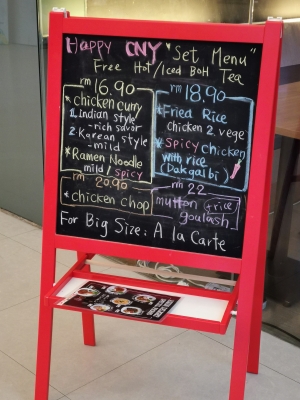 Happy CNY "Set Menu"
Free Hot/Iced BOH Tea
rm 16.90
* chicken curry
1. Indian style
-rich savor
2. Korean style
-mild
* Ramen Noodle
mild / spicy
rm 18.90
* Fried Rice
chicken 2. vege
* Spicy chicken
with rice
(Dak galbi)
rm 20.90
* chicken chop
rm 22
mutton + rice
goulash
For Big Size: A la Carte